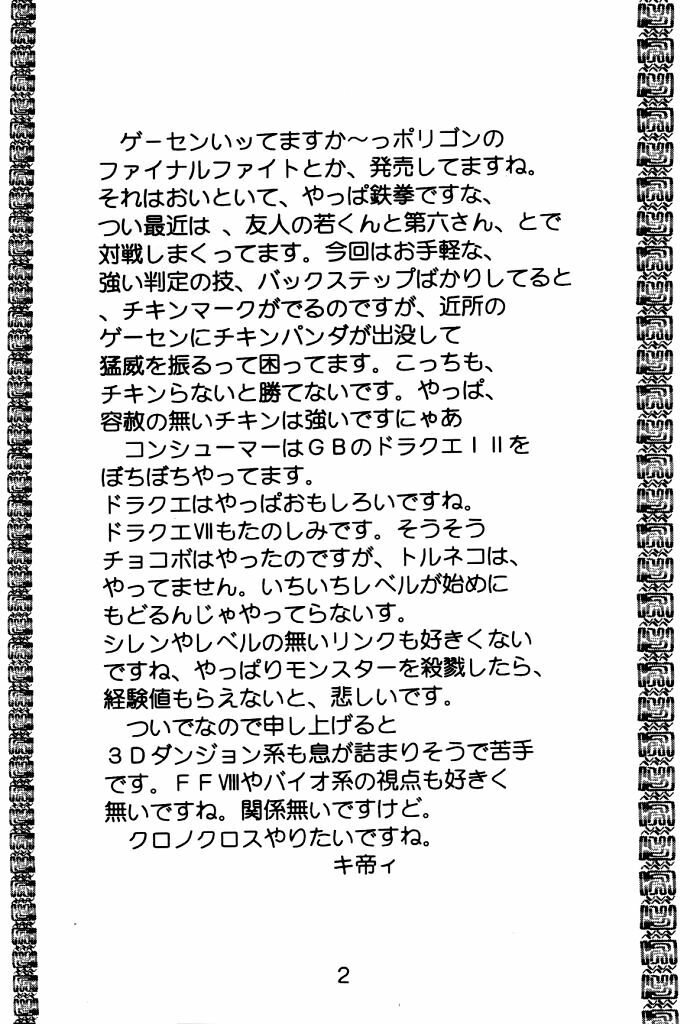 ゲーセンいッてますか～っポリゴンの
ファイナルファイトとか、発売してますね。
それはおいといて、やっぱ鉄拳ですな、
つい最近は 、友人の若くんと第六さん、とで
対戦しまくってます。今回はお手軽な、
強い判定の技、バックステップばかりしてると
、チキンマークがでるのですが、近所の
ゲーセンにチキンパンダが出没して
猛威を振るって困ってます。こっちも、
チキンらないと勝てないです。やっぱ、
容赦の無いチキンは強いですにゃあ
コンシューマーはＧＢのドラクエⅠⅡを
ぼちぼちやってます。
ドラクエはやっぱおもしろいですね。
ドラクエⅦもたのしみです。そうそう
チョコボはやったのですが、トルネコは、
やってません。いちいちレベルが始めに
もどるんじゃやってらないす。
シレンやレベルの無いリンクも好きくない
ですね、やっぱりモンスターを殺戮したら、
経験値もらえないと、悲しいです。
ついでなので申し上げると
３Ｄダンジョン系も息が詰まりそうで苦手
です。ＦＦⅧやバイオ系の視点も好きく
無いですね。関係無いですけど。
クロノクロスやりたいですね。
キ帝ィ
2